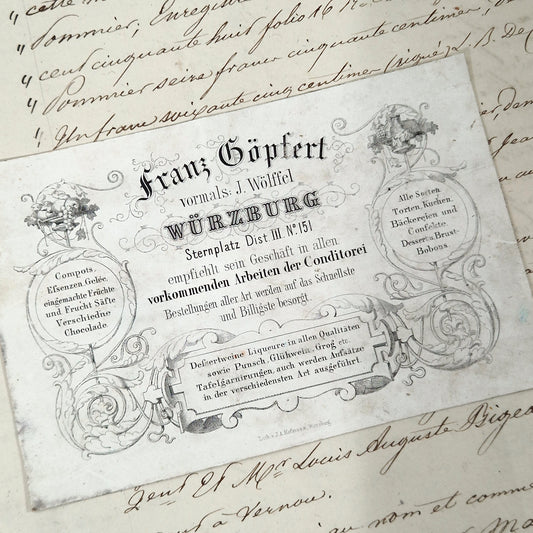 cette m
" Pommier, Enregistré
" cent cinquante huit folio 16
" Pommier seize francs cinquante centimes,
" Un franc soixante cinq centimes (signé) L. B. De
Franz Göpfert
vormals: J. Wölffel
WÜRZBURG
Sternplatz Dist III. No. 151
empfiehlt sein Geschäft in allen
vorkommenden Arbeiten der Conditorei
Bestellungen aller Art werden auf das Schnellste
und Billigste besorgt.
Compots,
Essenzen, Gelée,
eingemachte Früchte
und Frucht Säfte
Verschiedne
Chocolade.
Alle Sorten
Torten, Kuchen,
Bäckereien und
Confekte
Dessert u. Brust-
Bobons.
Dessertweine, Liqueure in allen Qualitäten
sowie Punsch, Glühwein, Grog etc.
Tafelgarnierungen, auch werden Aufsätze
in der verschiedensten Art ausgeführt.
Jean
Et Mr Louis Auguste Bigeo
à Vernou.
au nom et comme